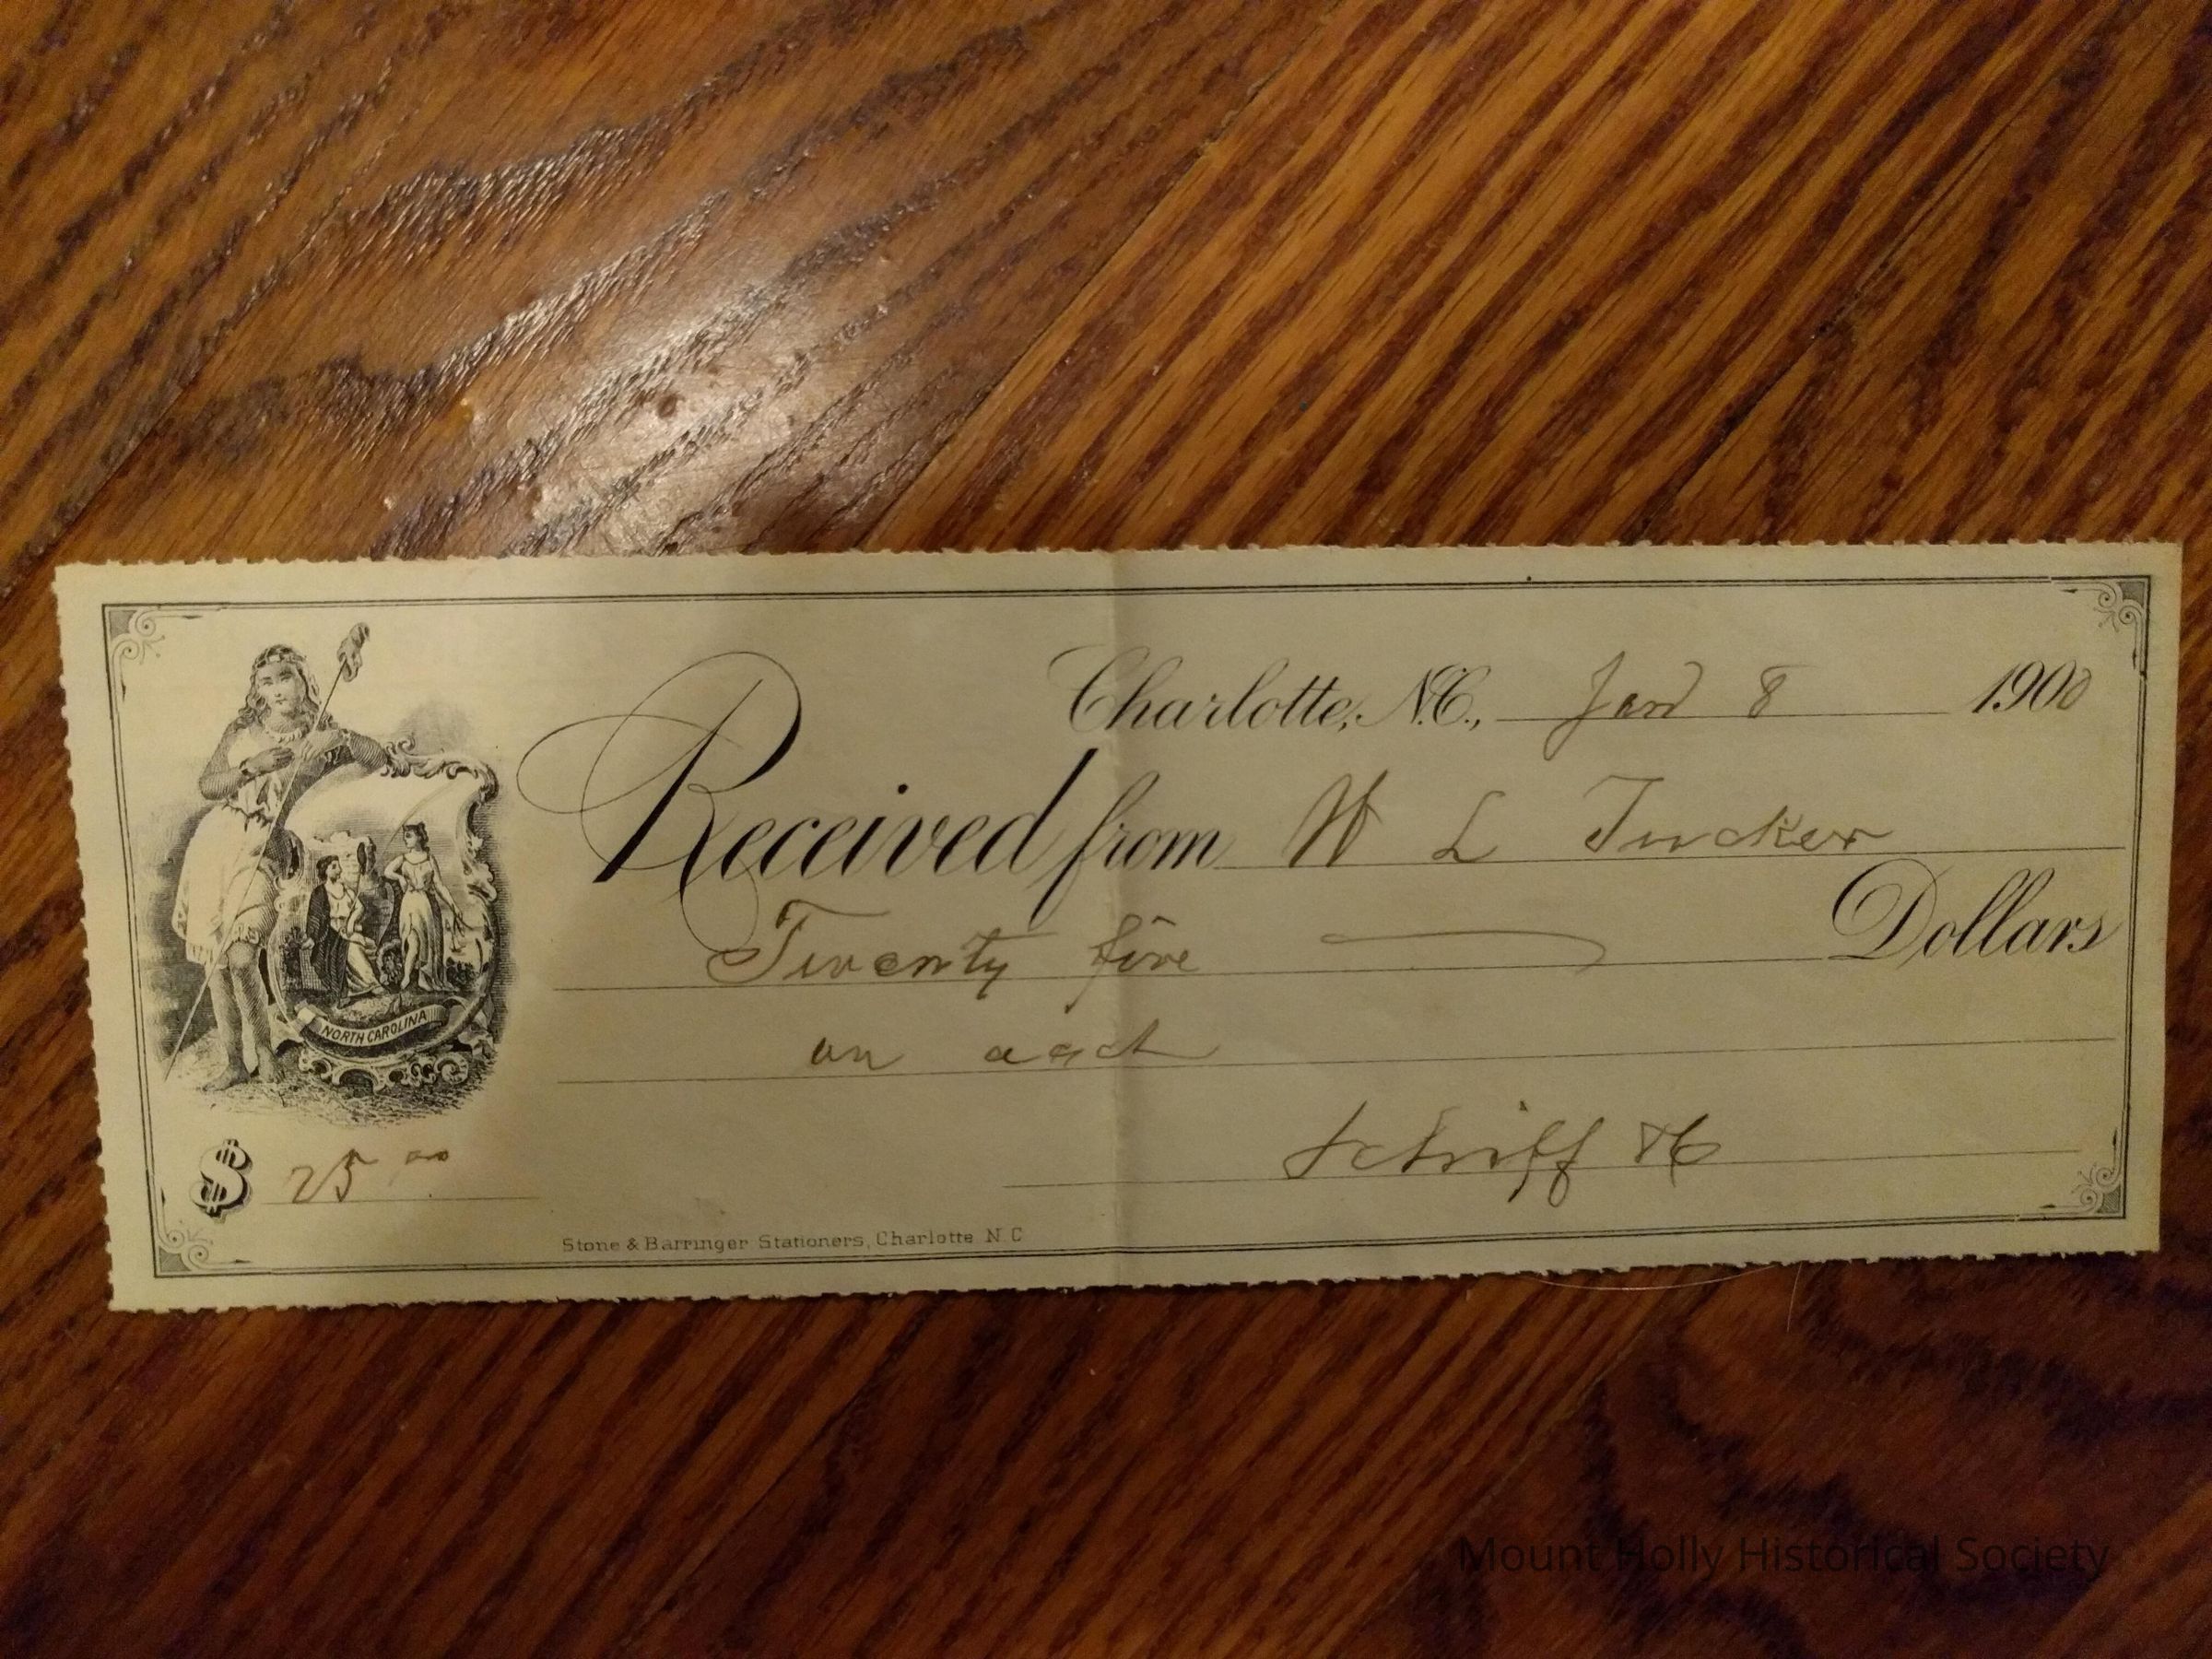 Charlotte, N.C., Jan 8 1900
Received from W L Tucker
Twenty five Dollars
on acct
NORTH CAROLINA
$ 25 00
Schiff & Co
Stone & Barringer Stationers, Charlotte N.C
Mount Holly Historical Society